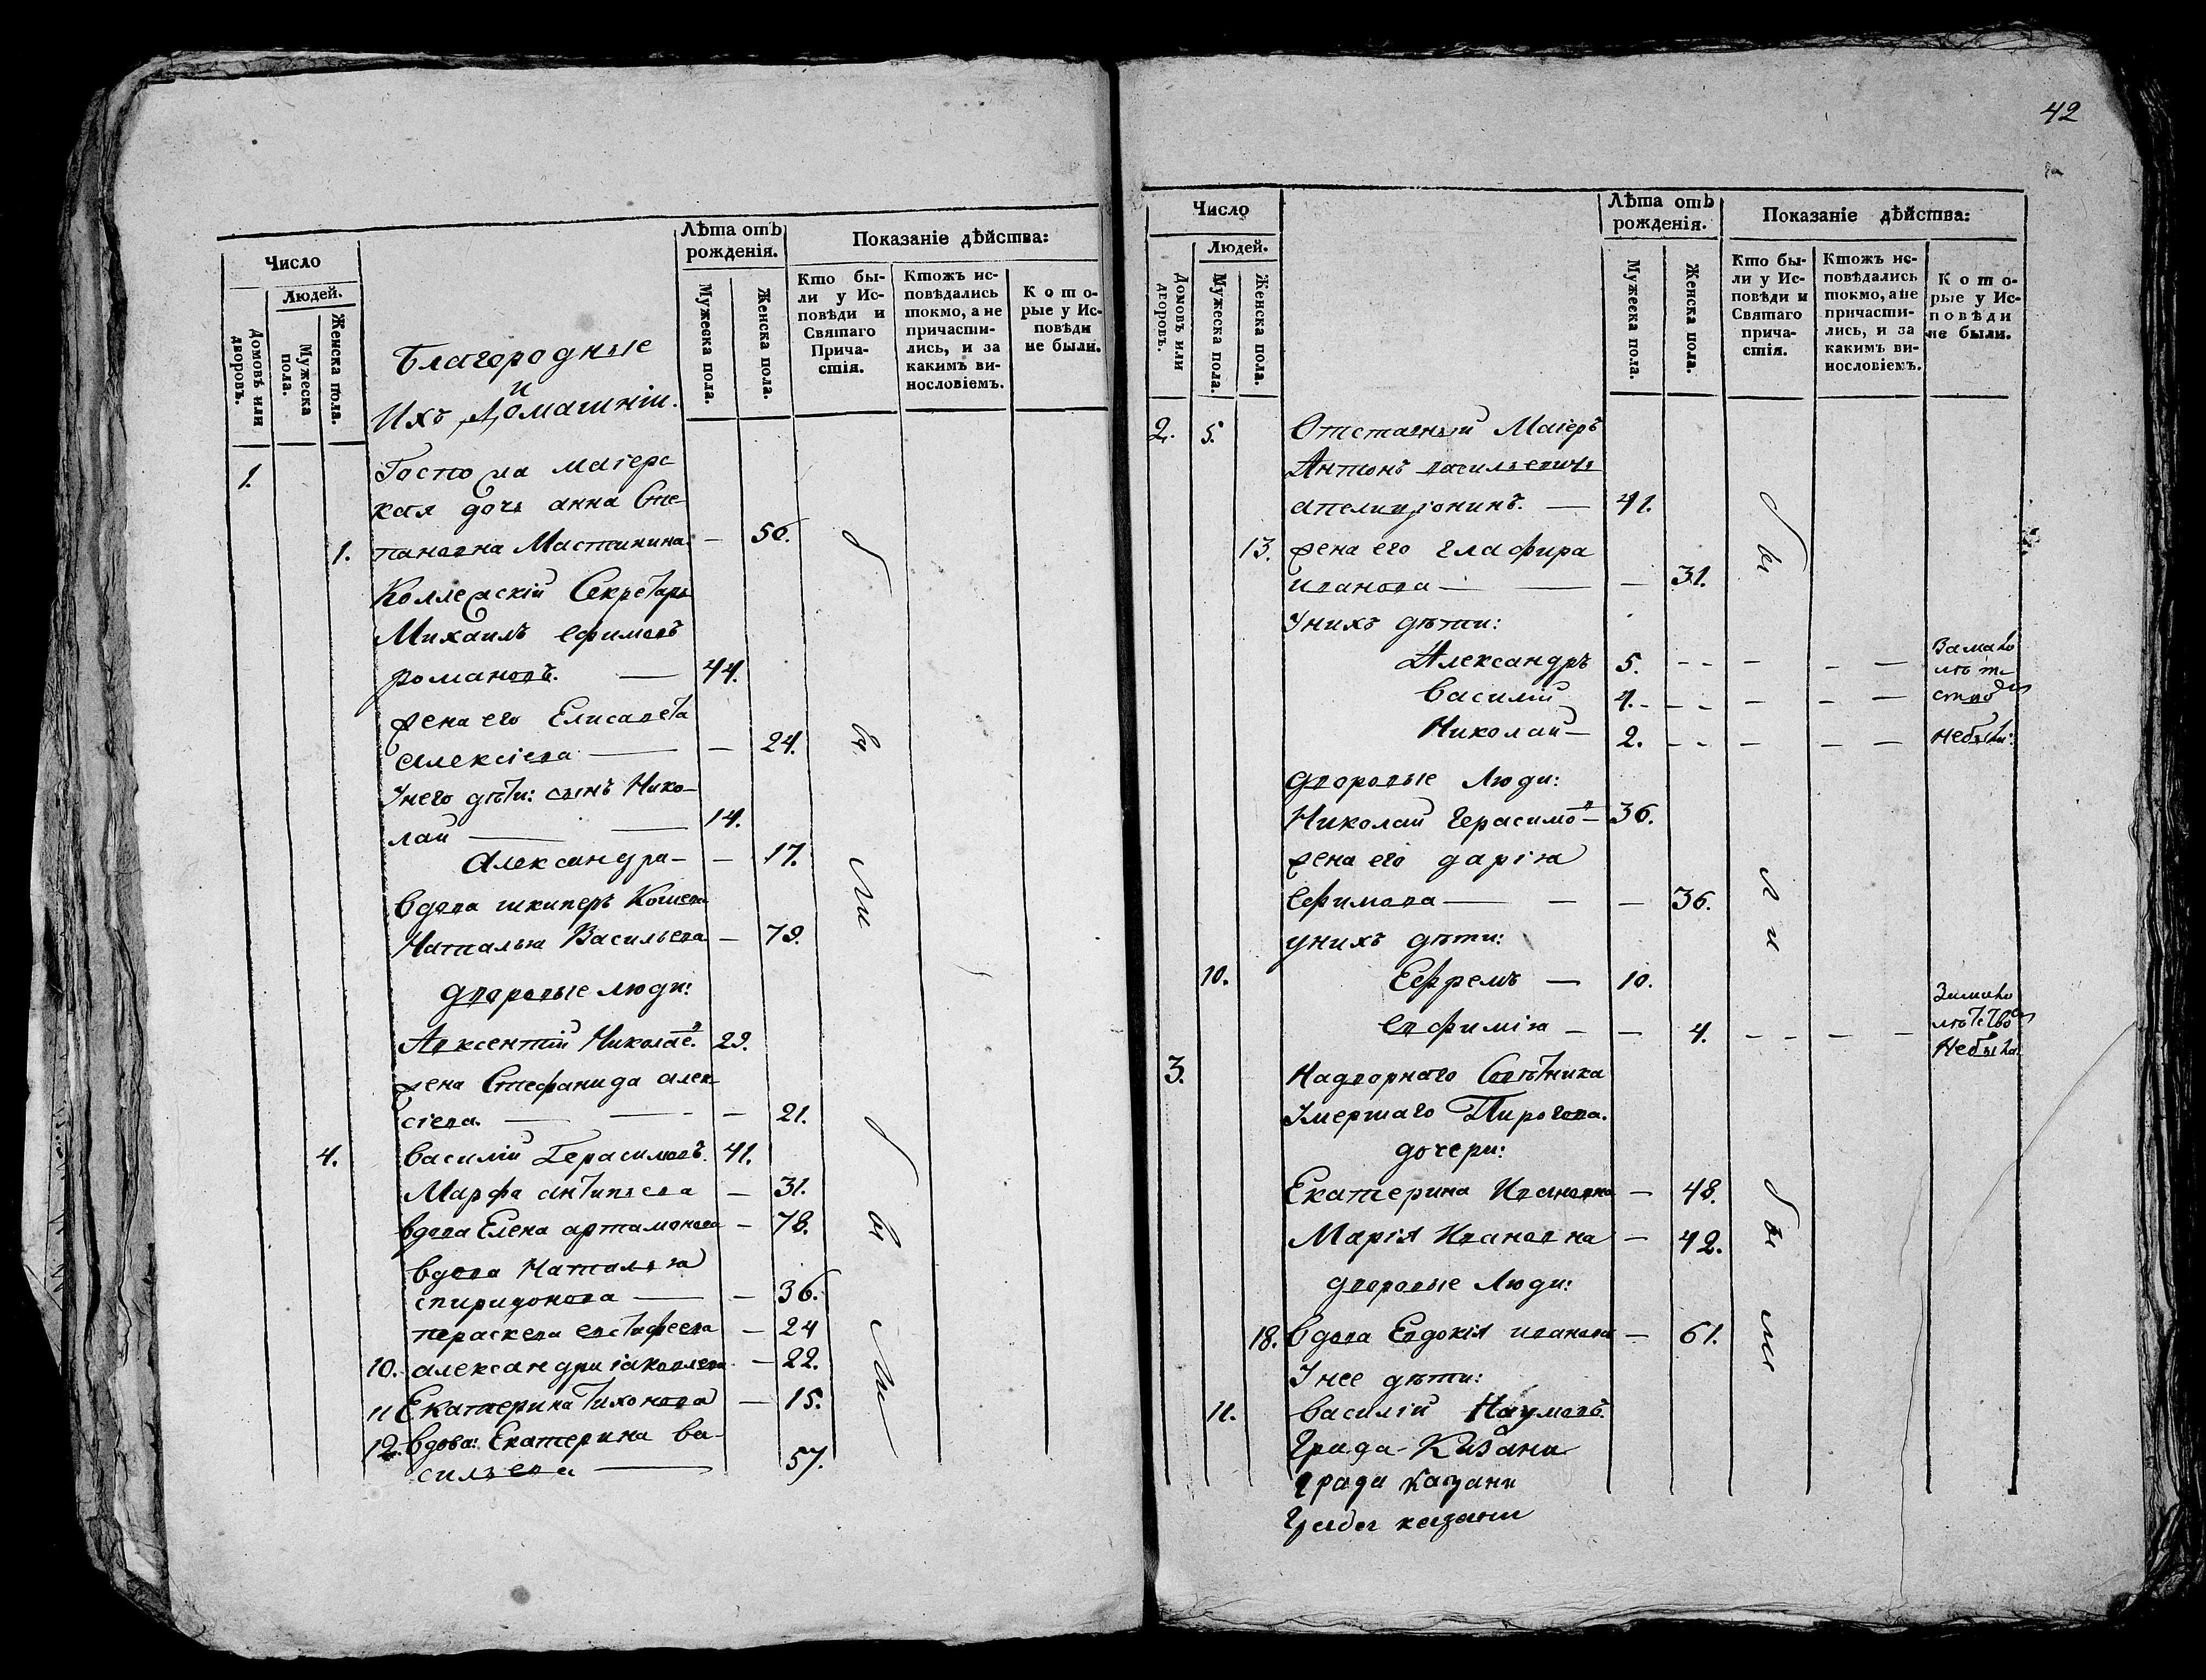 Число
Людей.
Домовъ или дворовъ.
Мужеска пола.
Женска пола.
Благородные
и
Ихъ Домашніи.
Лѣта отъ рожденія.
Мужеска пола.
Женска пола.
Показаніе дѣйства:
Кто бы-
ли у Ис-
повѣди и
Святаго
Прича-
стія.
Ктожъ ис-
повѣдались
токмо, а не
причасти-
лись, и за
какимъ ви-
нословіемъ.
Кото-
рые у Ис-
повѣди
не были.
1. Госпо жа маіерс
кая дочь анна Сте-
1. пановна Мастинина. — 56.
Коллежскій Секретарь
Михаилъ ефимовъ
романовъ. — 44.
жена его Елисавета
алексіева — — 24.
Унего дѣти: сынъ Нико-
лаи — — 14.
Александра — — 17.
вдова шкиперъ
Наталья Васильева — 79.
дворовые люди:
Авксентіи Николае.в 29.
жена Стефанида алек
сіева. — — — 21.
4. василіи Герасимовъ. 41.
Марфа антипьева — 31.
вдова Елена артамонова — 78.
вдова Наталья
спиридонова — — 36.
параскева евстафеева — 24
10. александра іаковлева — 22.
11 Екатерина тихонова — 15.
12. вдова: Екатерина ва-
сильева — 57.
бы
ли
бы
ли
42
Число
Людей.
Домовъ или дворовъ.
Мужеска пола.
Женска пола.
Лѣта отъ
рожденія.
Мужеска пола.
Женска пола.
Показаніе дѣйства:
Кто бы-
ли у Ис-
повѣди и
Святаго
прича-
стія.
Ктожъ ис-
повѣдались
токмо, а не
причасти-
лись, и за
какимъ ви-
нословіемъ.
Кото-
рые у Ис-
повѣди
не были.
2. 5. Отставныи Маіеръ
Антонъ васильевичь
апелиціонинъ. — 41.
13. жена его глафира
иванова — — — 31.
Унихъ дѣти:
Александръ 5. - - — - —
Василіи 4. - - - — - —
Николаи — 2. - - — - —
За мало
лѣт
ство
небыли:
дворовые люди:
Николаи герасимов — 36.
жена его дарія
ефимова — — — 36.
унихъ дѣти:
10. Ефремъ — 10.
евфимія — — 4. - - - — —
За мало
лѣтство
Небыла
3. Надворнаго Совѣтника
Умершаго Пирогова.
дочери:
Екатерина Ивановна — 48.
Марія Ивановна — 42.
дворовые Люди:
18. вдова Евдокія иванова — 61.
Унее дѣти:
11. василіи Наумовъ.
бы
ли
бы
ли
Града Казани
града казани
Града казани